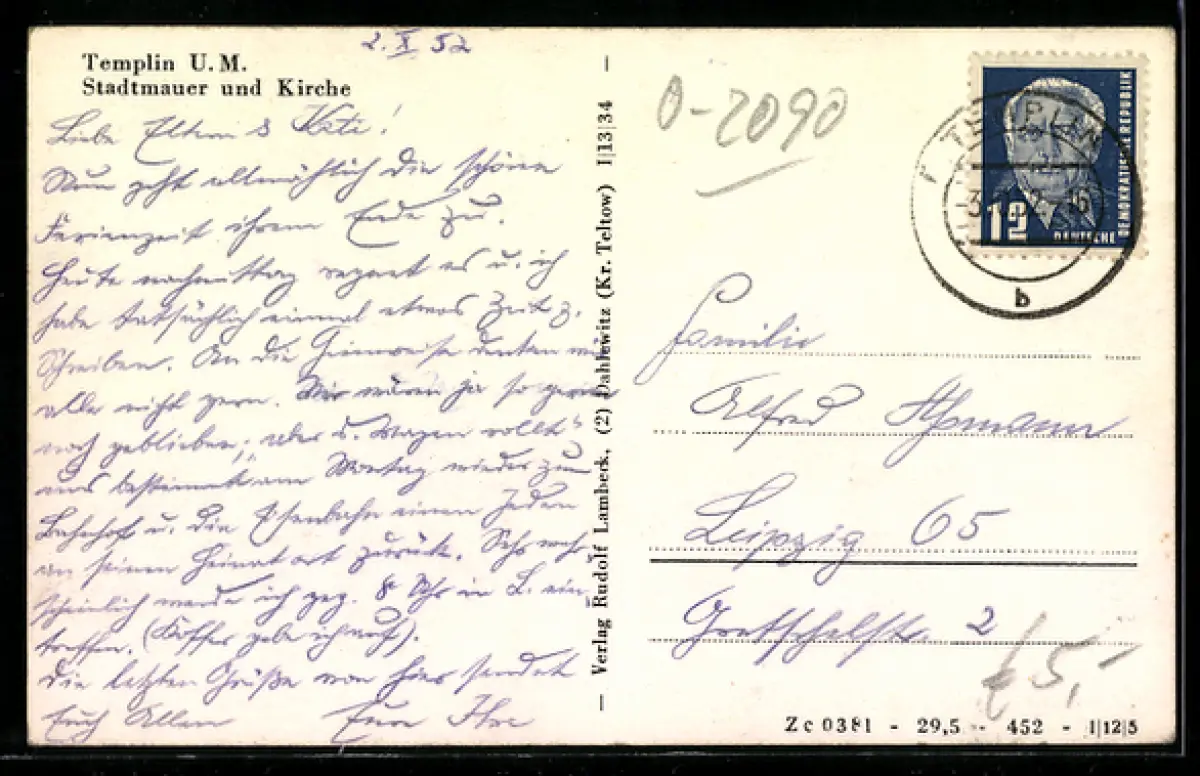 2. X. 52
Templin U. M.
Stadtmauer und Kirche
Liebe Eltern & Käte!
Nun geht allmählich die schöne
Ferienzeit ihrem Ende zu.
Heute nachmittag regnet es u. ich
habe tatsächlich einmal etwas Zeit z.
Schreiben. An die Heimreise denken wir
alle nicht gern. Wir wären ja so gerne
noch geblieben, aber d. Wagen rollt
uns bestimmt am Montag wieder zum
Bahnhof u. die Eisenbahn einen Jeden
an seinen Heimatort zurück. Sehr wahr-
scheinlich werde ich geg. 8 Uhr in L. ein-
treffen. (Koffer gebe ich auf).
Die letzten Grüße von hier sendet
Euch Allen Eure
— Verlag Rudolf Lambeck, (2) Dahlewitz (Kr. Teltow) I|13|34 —
0-2090
12
DEUTSCHE
DEMOKRATISCHE REPUBLIK
TEMPLIN
b
Familie
Alfred
Leipzig 05
2
5,-
Zc 0381 - 29,5 - 452 - I|12|5